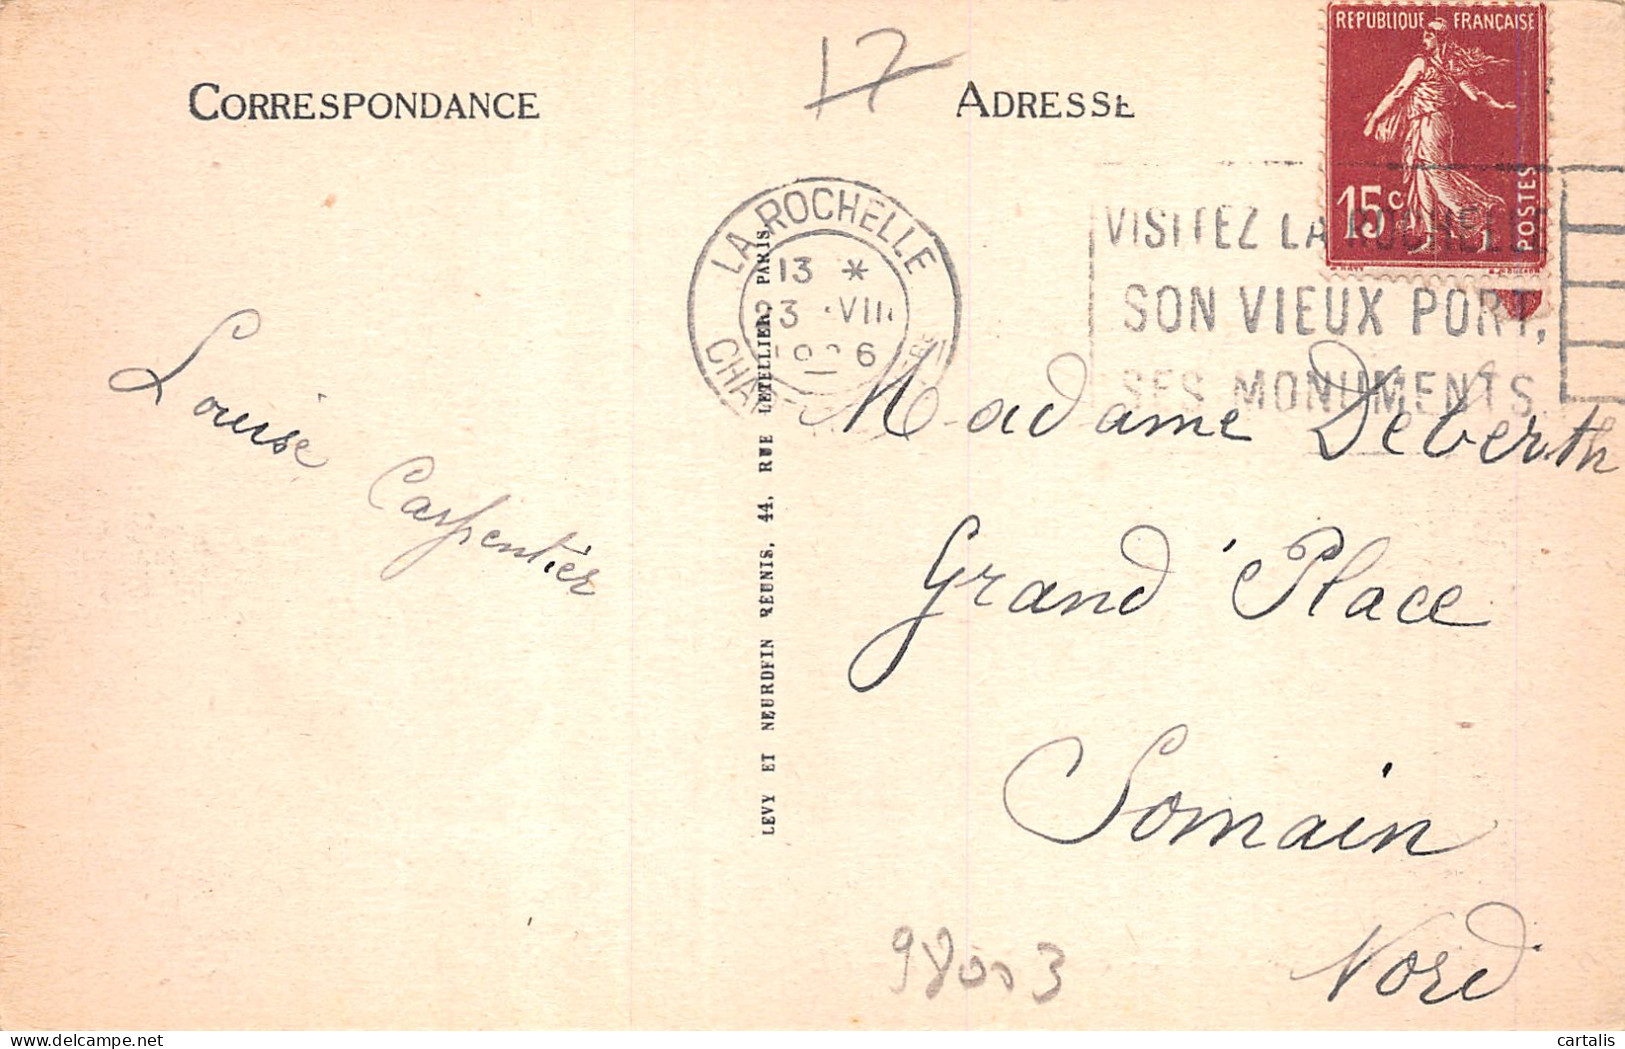 CORRESPONDANCE
17
ADRESSE
REPUBLIQUE FRANÇAISE
15c
POSTES
LA ROCHELLE
13 *
23 VIII
1926
VISITEZ LA ROCHELLE
SON VIEUX PORT,
SES MONUMENTS
Louise
Carpentier
LEVY ET NEURDEIN REUNIS, 44, RUE LETELLIER, PARIS
Madame Deberth
Grand'Place
Somain
Nord
98003
cartalis